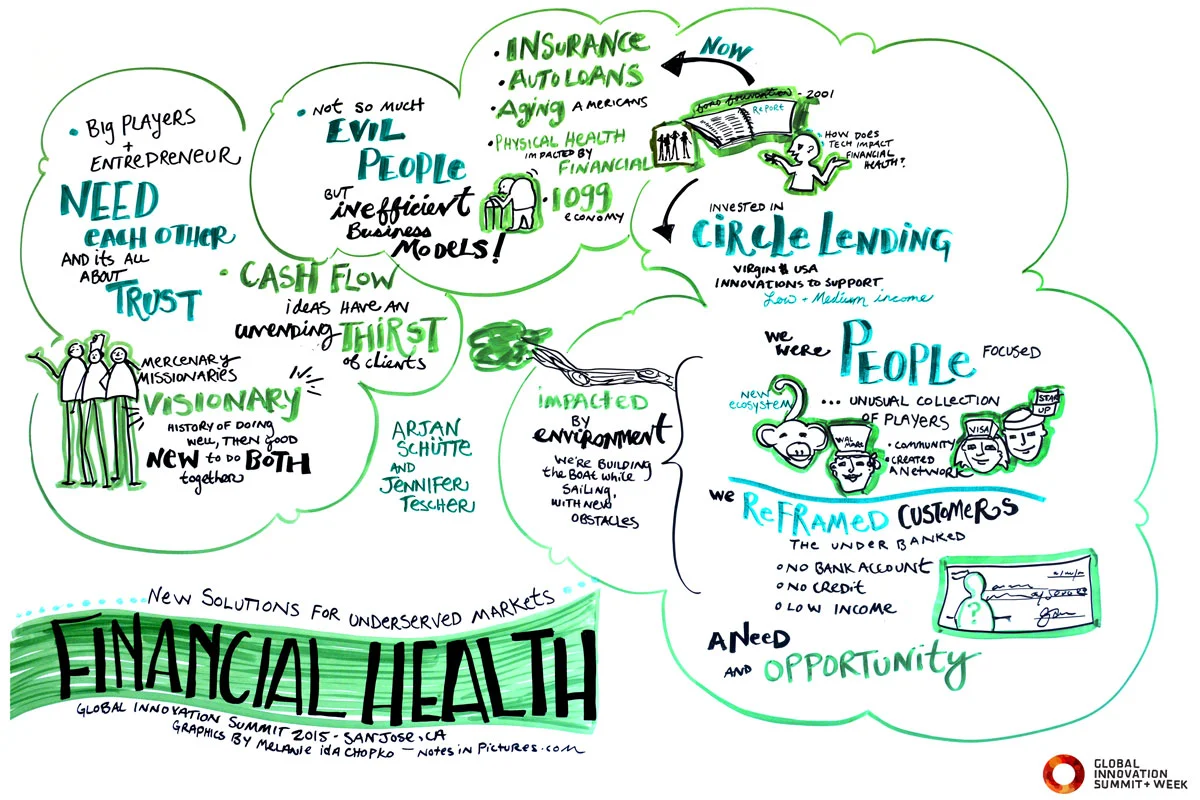 • BIG PLAYERS
+
ENTREPRENEUR
NEED
EACH OTHER
AND ITS ALL
ABOUT
TRUST
MERCENARY
MISSIONARIES
VISIONARY
HISTORY OF DOING
WELL, THEN GOOD
NEW TO DO BOTH
together
• NOT SO MUCH
EVIL
PEOPLE
BUT
INEFFICIENT
BUSINESS
MODELS!
• CASH FLOW
IDEAS HAVE AN
UNENDING THIRST
of clients
ARJAN
SCHÜTTE
AND
JENNIFER
TESCHER
• INSURANCE
• AUTO LOANS
• AGING AMERICANS
• PHYSICAL HEALTH
IMPACTED BY
FINANCIAL
• 1099
ECONOMY
NOW
FORD FOUNDATION - 2001
REPORT
• HOW DOES
TECH IMPACT
FINANCIAL
HEALTH?
INVESTED IN
CIRCLE LENDING
VIRGIN $ USA
INNOVATIONS TO SUPPORT
Low + Medium income
WE
WERE PEOPLE FOCUSED
NEW
ECOSYSTEM
... UNUSUAL COLLECTION
OF PLAYERS
• COMMUNITY
• CREATED
A NETWORK
WAL
MART
VISA
START
UP
WE REFRAMED CUSTOMERS
THE UNDER BANKED
o NO BANK ACCOUNT
o NO CREDIT
o LOW INCOME
?
A NEED
AND OPPORTUNITY
IMPACTED
BY
ENVIRONMENT
WE'RE BUILDING
the BOAT WHILE
SAILING,
WITH NEW
OBSTACLES
NEW SOLUTIONS FOR UNDERSERVED MARKETS
FINANCIAL HEALTH
GLOBAL INNOVATION SUMMIT 2015 - SAN JOSE, CA
GRAPHICS BY MELANIE IDA CHOPKO — NOTES IN PICTURES.COM
GLOBAL
INNOVATION
SUMMIT + WEEK